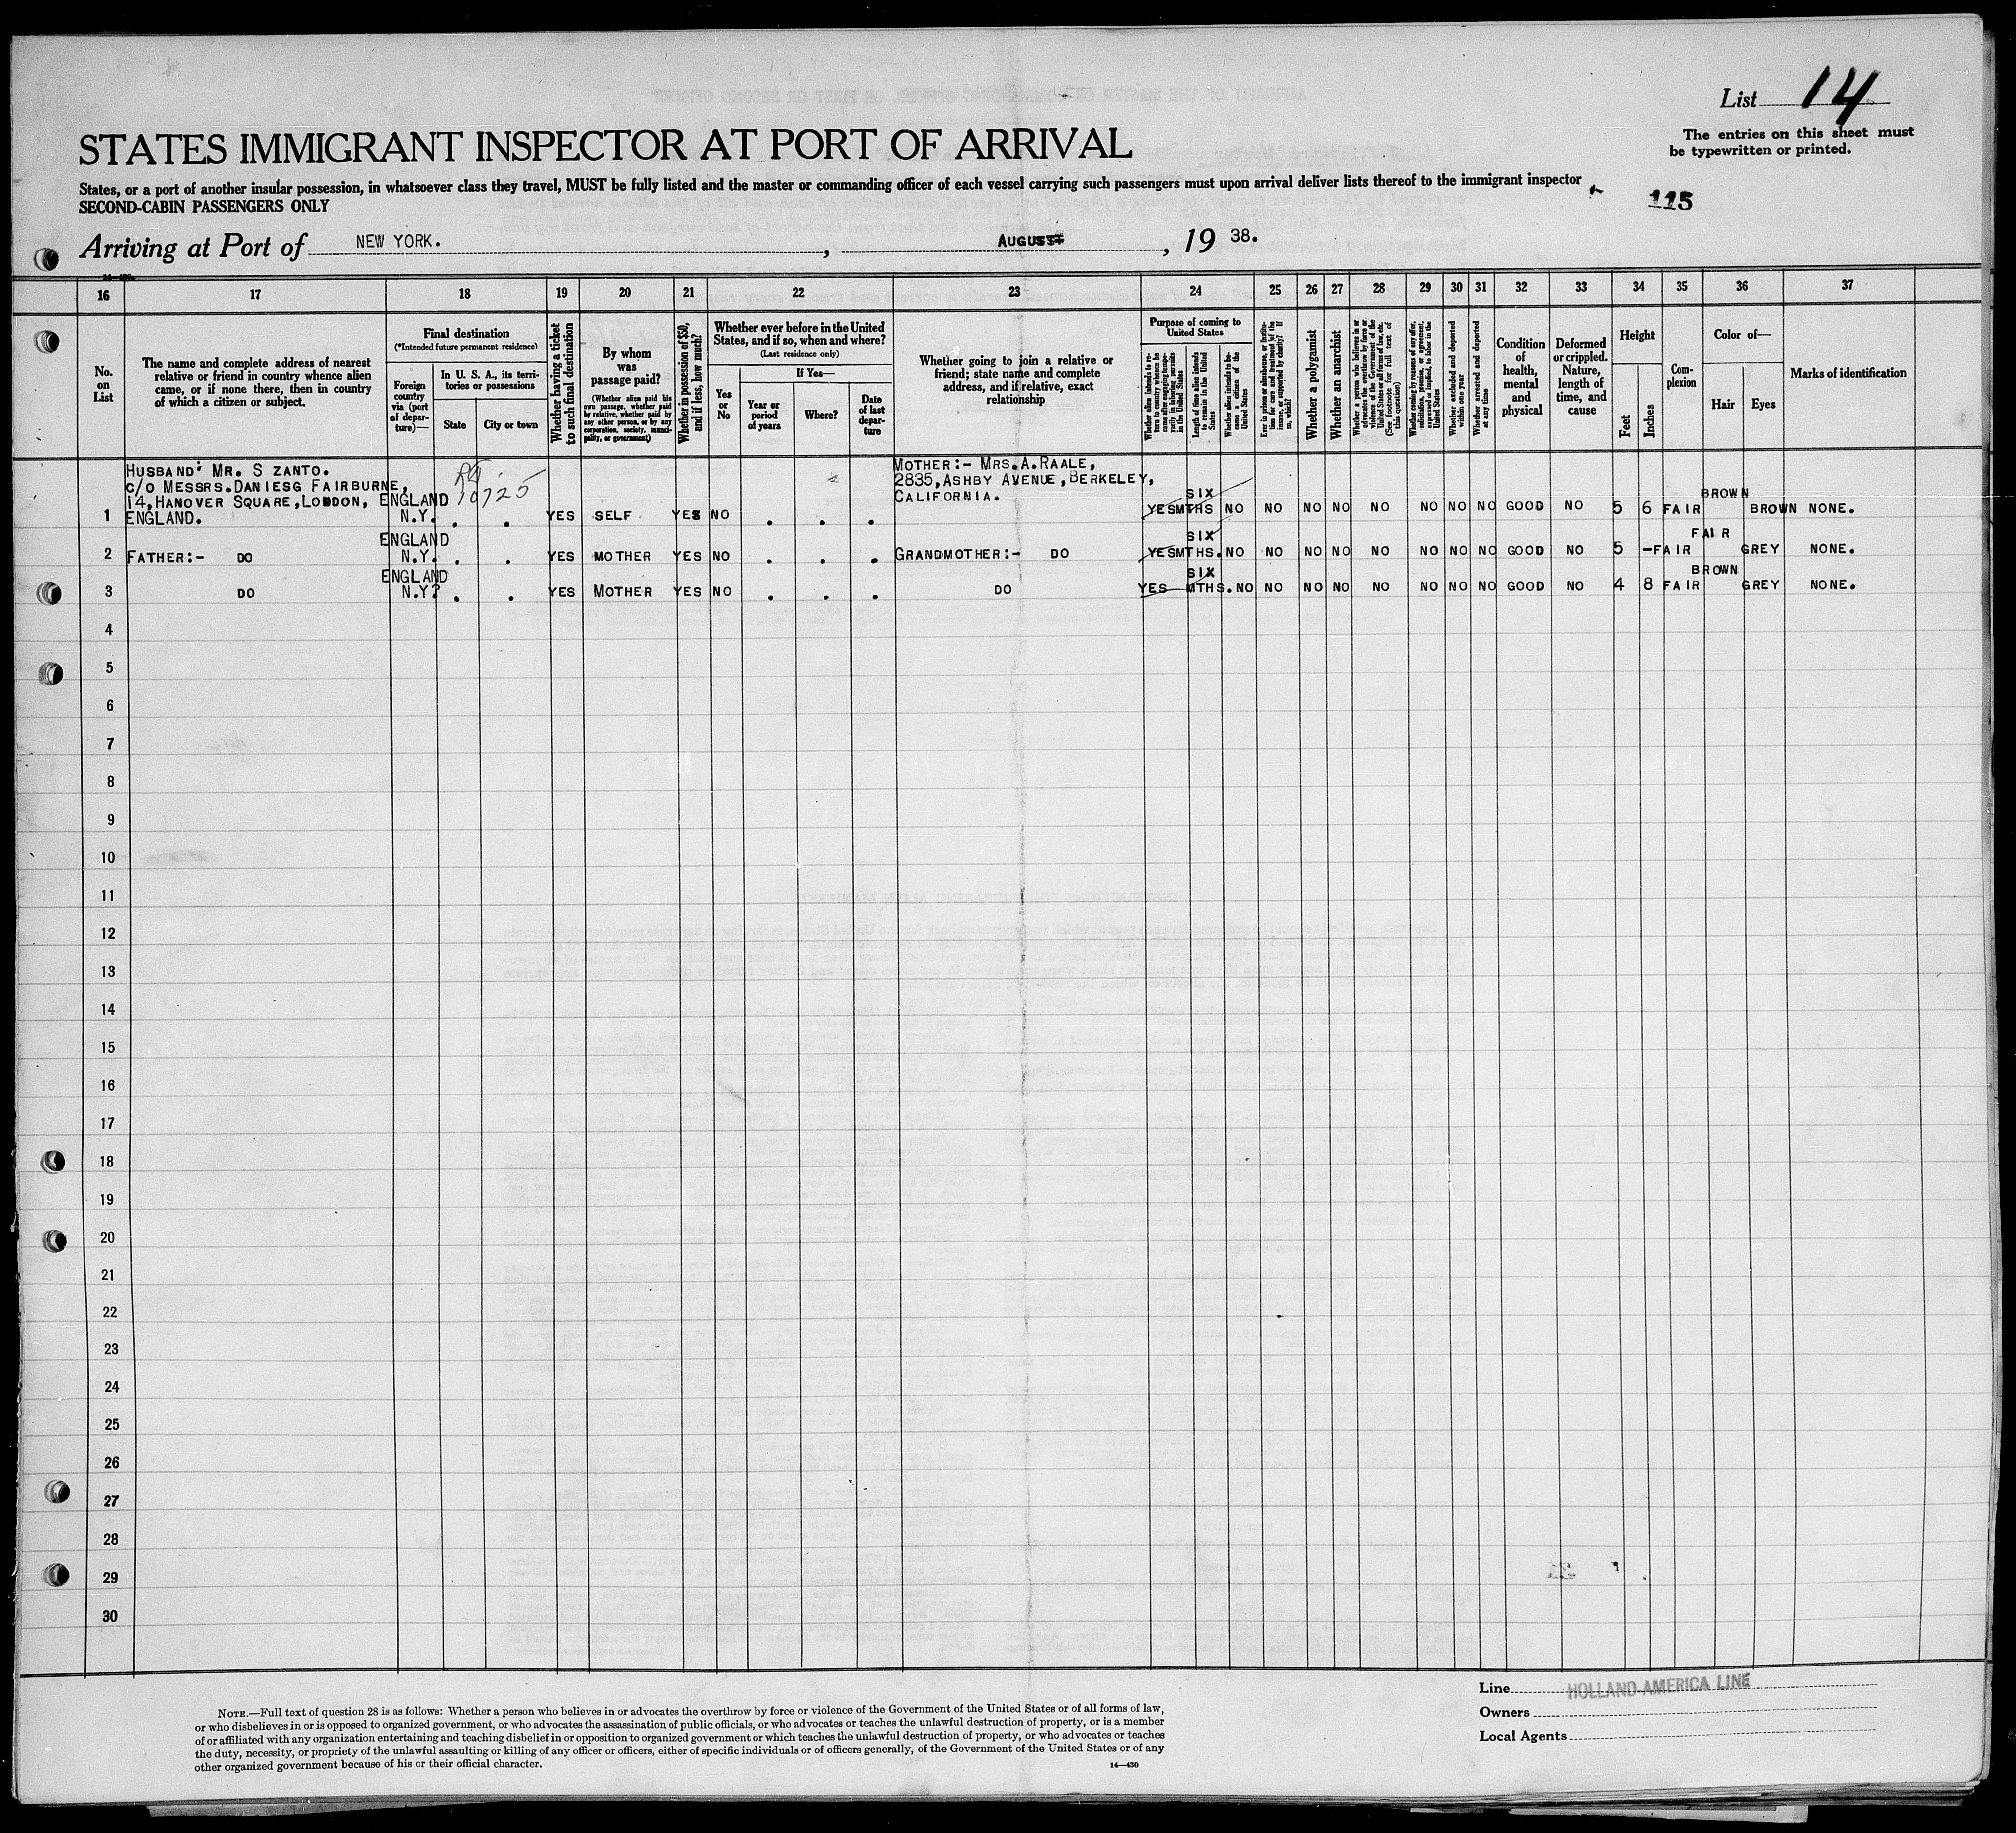 List 14
The entries on this sheet must
be typewritten or printed.
STATES IMMIGRANT INSPECTOR AT PORT OF ARRIVAL
States, or a port of another insular possession, in whatsoever class they travel, MUST be fully listed and the master or commanding officer of each vessel carrying such passengers must upon arrival deliver lists thereof to the immigrant inspector
SECOND-CABIN PASSENGERS ONLY
115
Arriving at Port of NEW YORK. , AUGUST , 19 38.
16 17 18 19 20 21 22 23 24 25 26 27 28 29 30 31 32 33 34 35 36 37
No.
on
List
The name and complete address of nearest
relative or friend in country whence alien
came, or if none there, then in country
of which a citizen or subject.
Final destination
(*Intended future permanent residence)
Foreign
country
via (port
of depar-
ture)—
In U. S. A., its terri-
tories or possessions
State
City or town
Whether having a ticket
to such final destination
By whom
was
passage paid?
(Whether alien paid his
own passage, whether paid
by relative, whether paid by
any other person, or by any
corporation, society, munici-
pality, or government)
Whether in possession of $50,
and if less, how much?
Whether ever before in the United
States, and if so, when and where?
(Last residence only)
Yes
or
No
If Yes—
Year or
period
of years
Where?
Date
of last
depar-
ture
Whether going to join a relative or
friend; state name and complete
address, and if relative, exact
relationship
Purpose of coming to
United States
Whether alien intends to re-
turn to country whence he
came after engaging tempo-
rarily in laboring pursuits
in the United States
Length of time alien intends
to remain in the United
States
Whether alien intends to be-
come a citizen of the
United States
Ever in prison or almshouse, or institu-
tion for care and treatment of the
insane, or supported by charity? If
so, which?
Whether a polygamist
Whether an anarchist
Whether a person who believes in or
advocates the overthrow by force or
violence of the Government of the
United States or all forms of law, etc.
(See footnote for full text of
this question)
Whether coming by reasons of any offer,
solicitation, promise, or agreement,
expressed or implied, to labor in the
United States
Whether excluded and deported
within one year
Whether arrested and deported
at any time
Condition
of
health,
mental
and
physical
Deformed
or crippled.
Nature,
length of
time, and
cause
Height
Feet
Inches
Com-
plexion
Color of—
Hair
Eyes
Marks of identification
HUSBAND: MR. S ZANTO.
C/O MESSRS. DANIESG FAIRBURNE,
14, HANOVER SQUARE, LONDON,
ENGLAND.
10725
MOTHER:- MRS. A. RAALE,
2835, ASHBY AVENUE, BERKELEY,
CALIFORNIA.
1 ENGLAND N.Y. . . YES SELF YES NO . . . YES SIX MTHS NO NO NO NO NO NO NO NO GOOD NO 5 6 FAIR BROWN BROWN NONE.
2 FATHER:- DO ENGLAND N.Y. . . YES MOTHER YES NO . . . GRANDMOTHER:- DO YES SIX MTHS. NO NO NO NO NO NO NO NO GOOD NO 5 - FAIR FAIR GREY NONE.
3 DO ENGLAND N.Y? . . YES MOTHER YES NO . . . DO YES SIX MTHS. NO NO NO NO NO NO NO NO GOOD NO 4 8 FAIR BROWN GREY NONE.
4
5
6
7
8
9
10
11
12
13
14
15
16
17
18
19
20
21
22
23
24
25
26
27
28
29
30
NOTE.—Full text of question 28 is as follows: Whether a person who believes in or advocates the overthrow by force or violence of the Government of the United States or of all forms of law,
or who disbelieves in or is opposed to organized government, or who advocates the assassination of public officials, or who advocates or teaches the unlawful destruction of property, or is a member
of or affiliated with any organization entertaining and teaching disbelief in or opposition to organized government or which teaches the unlawful destruction of property, or who advocates or teaches
the duty, necessity, or propriety of the unlawful assaulting or killing of any officer or officers, either of specific individuals or of officers generally, of the Government of the United States or of any
other organized government because of his or their official character.
14—430
Line HOLLAND-AMERICA LINE
Owners
Local Agents